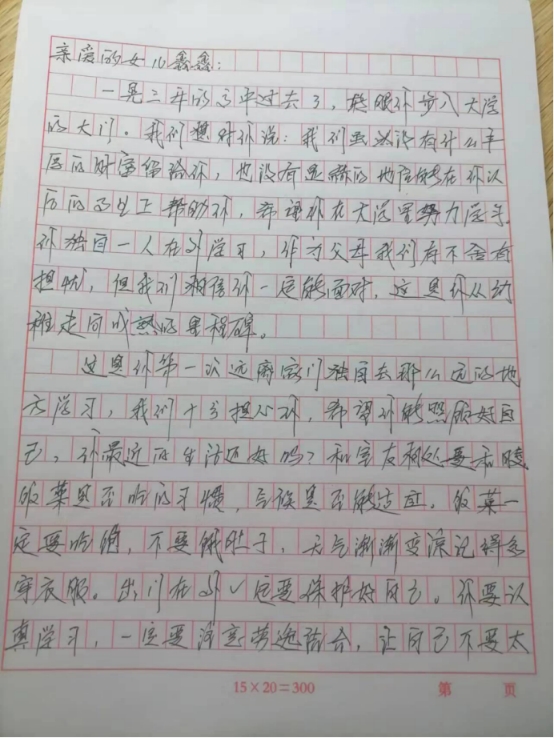 亲爱的女儿鑫鑫：
一晃三年的高中过去了，转眼你步入大学
的大门。我们想对你说：我们虽然没有什么丰
厚的财富留给你，也没有显赫的地位能在你以
后的人生上帮助你，希望你在大学里努力学习。
你独自一人在外学习，作为父母我们有不舍有
担忧，但我们相信你一定能面对，这是你从幼
稚走向成熟的里程碑。
这是你第一次远离家门独自去那么远的地
方学习，我们十分担心你，希望你能照顾好自
己，你最近的生活还好吗？和室友相处要和睦
饭菜是否吃的习惯，气候是否能适应，饭菜一
定要吃饱，不要饿肚子，天气渐渐变凉记得多
穿衣服。出门在外一定要保护好自己。你要认
真学习，一定要注意劳逸结合，让自己不要太
15×20=300
第 页